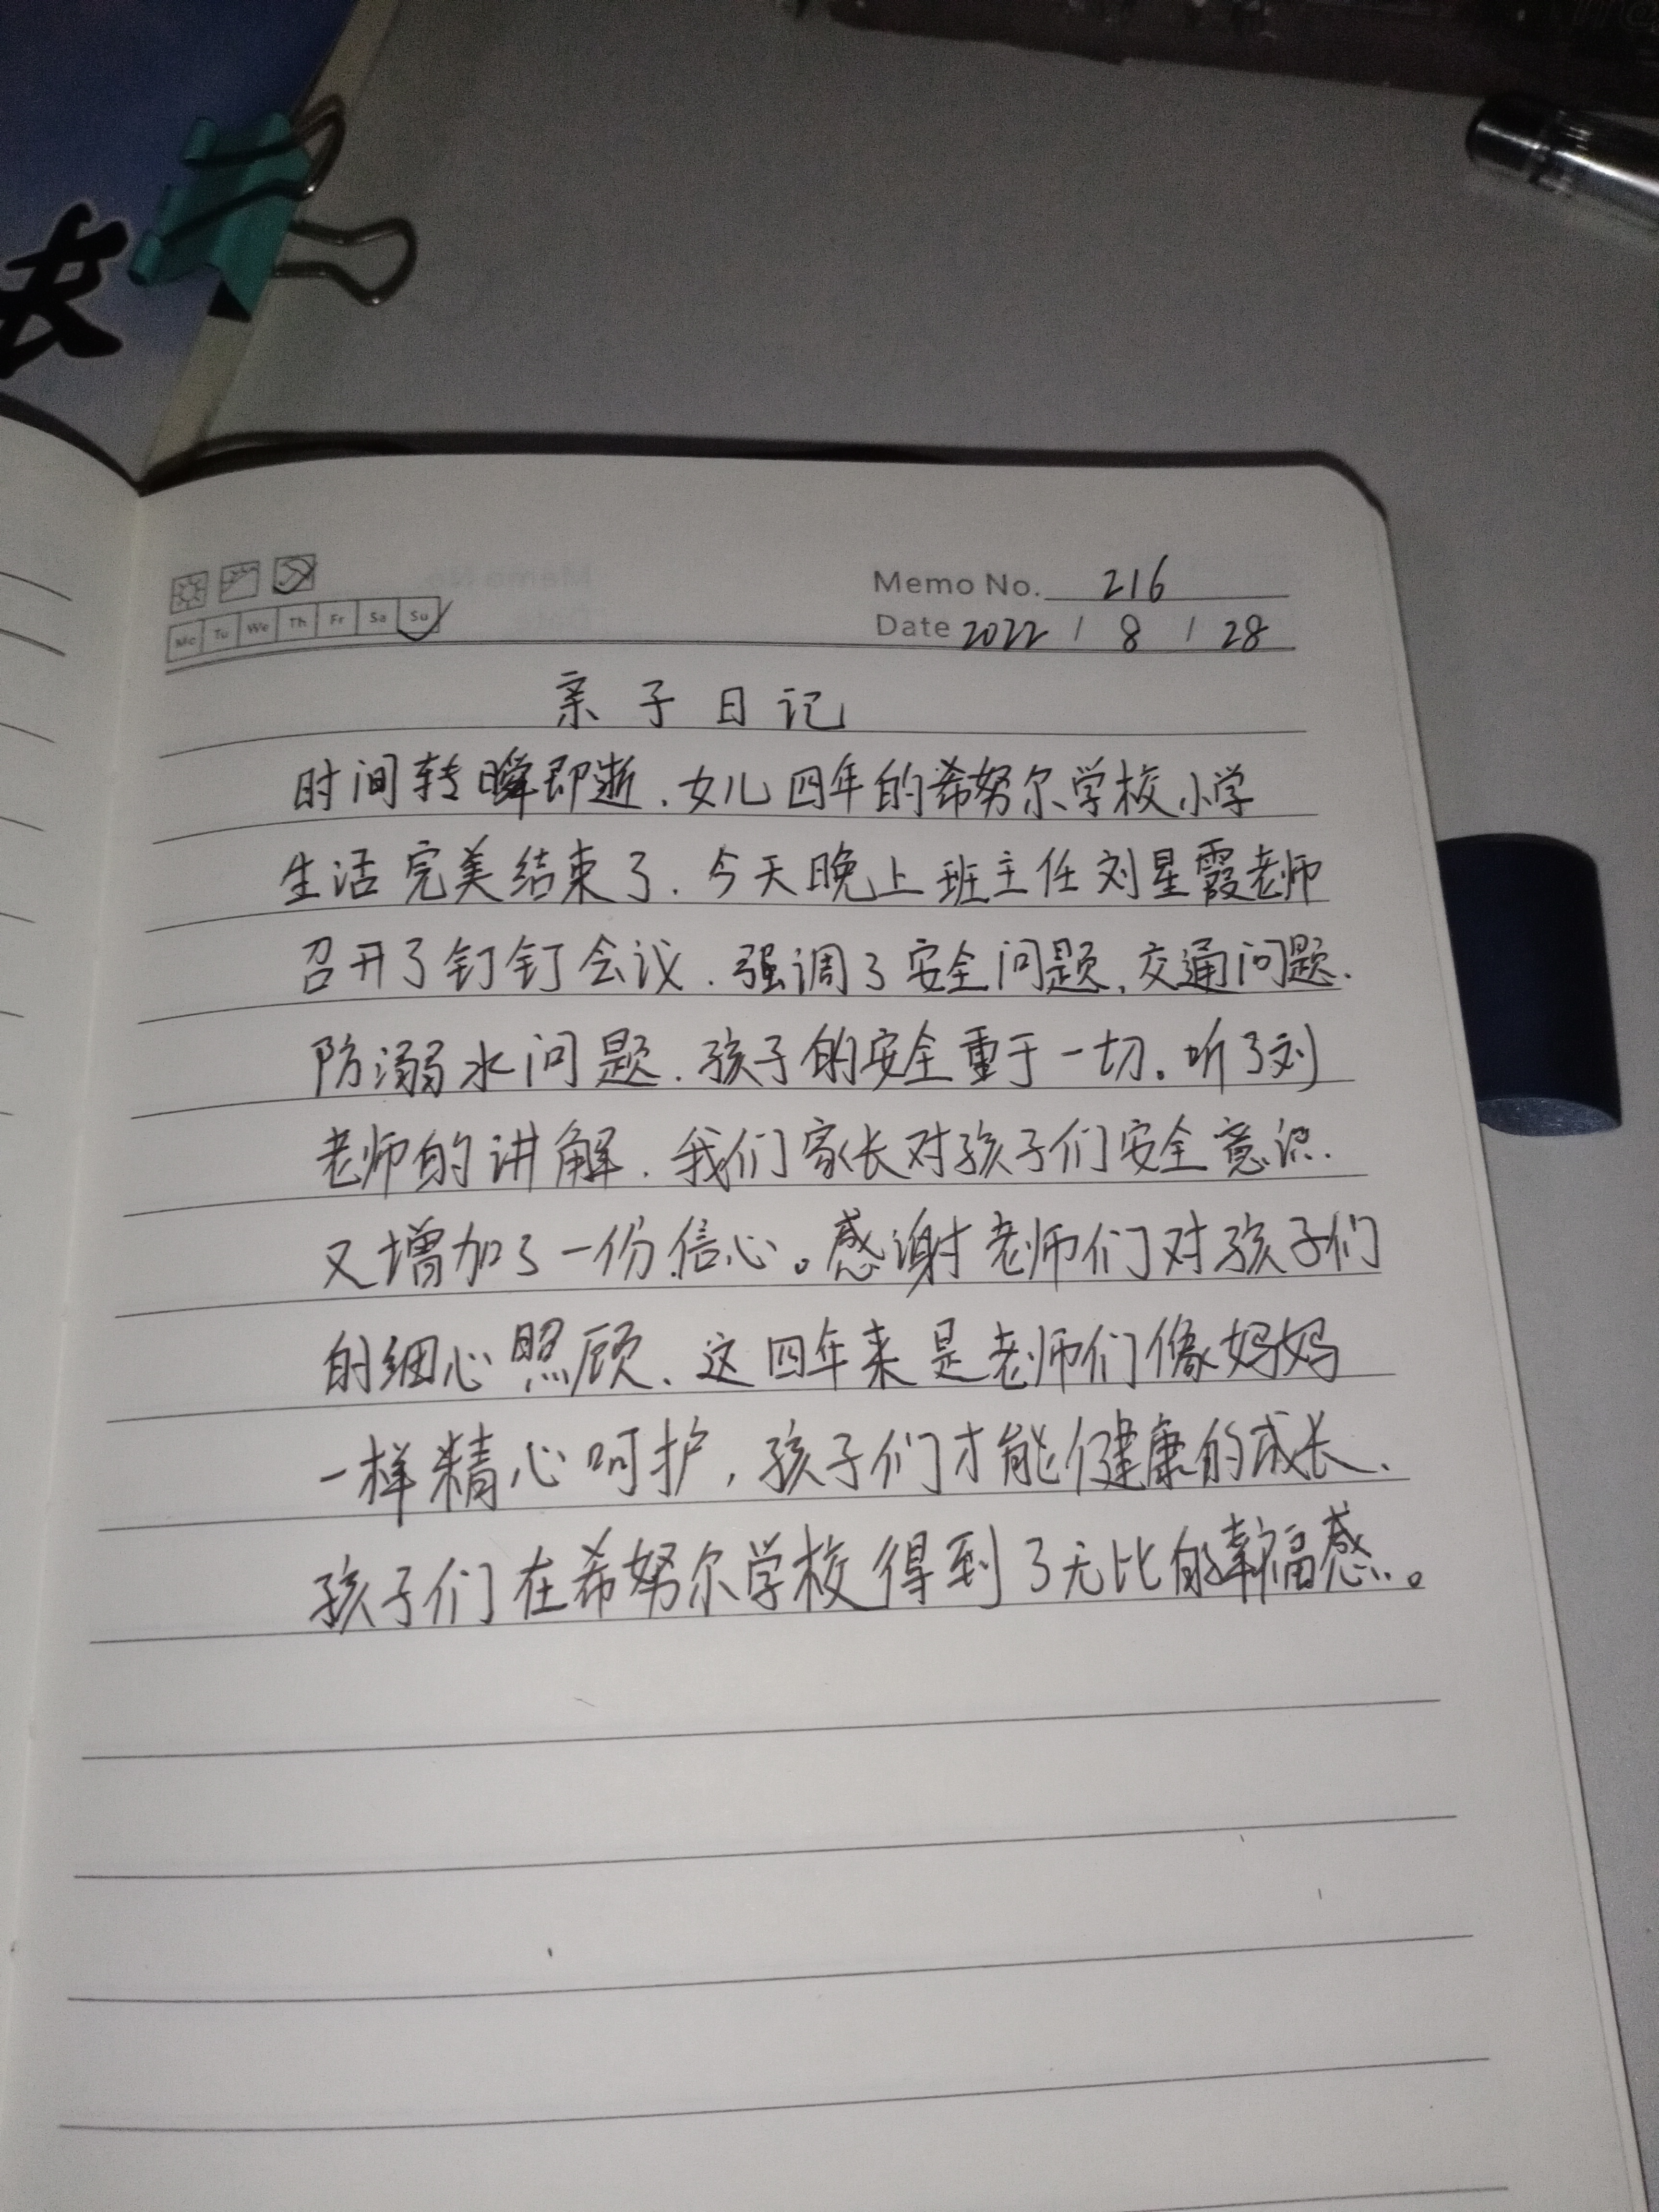 长
Memo No. 216
Mo Tu We Th Fr Sa Su
Date 2022 / 8 / 28
亲子日记
时间转瞬即逝、女儿四年的希努尔学校小学
生活完美结束了、今天晚上班主任刘星霞老师
召开了钉钉会议、强调了安全问题、交通问题、
防溺水问题、孩子的安全重于一切。听了刘
老师的讲解、我们家长对孩子们安全意识、
又增加了一份信心。感谢老师们对孩子们
的细心照顾、这四年来是老师们像妈妈
一样精心呵护,孩子们才能健康的成长、
孩子们在希努尔学校得到了无比的幸福感。